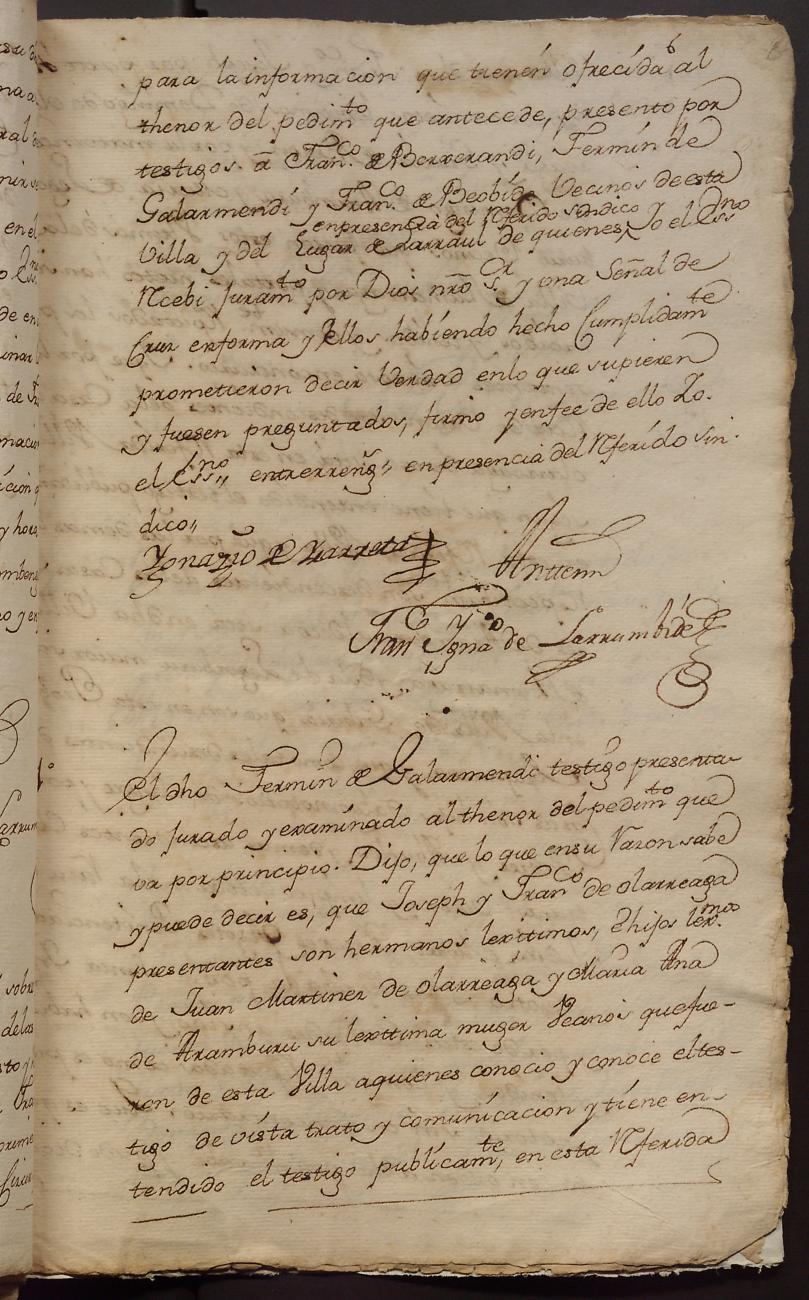 para la informacion que tienen ofrecida al
thenor del pedim.to que antecede, presento por
testigos. a Fran.co de Berrerandi, Fermin de
Galarmendi y Fran.co de Beobide Vecinos de esta
enpresencia del Referido sindico
Villa y del Lugar de Larraul de quienes, Yo el Ess.no
Recebi Juram.to por Dios nro S.or y una Señal de
Cruz enforma y ellos habiendo hecho Cumplidam.te
prometieron decir Verdad enlo que supieren
y fuesen preguntados, firmo yenfee de ello Yo.
el Ess.no,, entrerreng.s,, en presencia del Referido sin-
dico,,
Ygnazio de
Antemi
Fran.co Ygna.o de Larrumbide
1º
El dho Fermin de Galarmendi testigo presenta-
do Jurado yexaminado al thenor del pedim.to que
va por principio. Dijo, que lo que ensu Razon sabe
ypuede decir es, que Joseph y Fran.co de olarreaga
presentantes son hermanos lexittimos, e hijos lex.mos
de Juan Martinez de olarreaga y Maria Ana
de Aramburu su lexittima muger Vecinos quefue-
ron de esta Villa aquienes conocio y conoce eltes-
tigo de vista trato y comunicacion ytiene en-
tendido el testigo publicam.te, en esta Referida